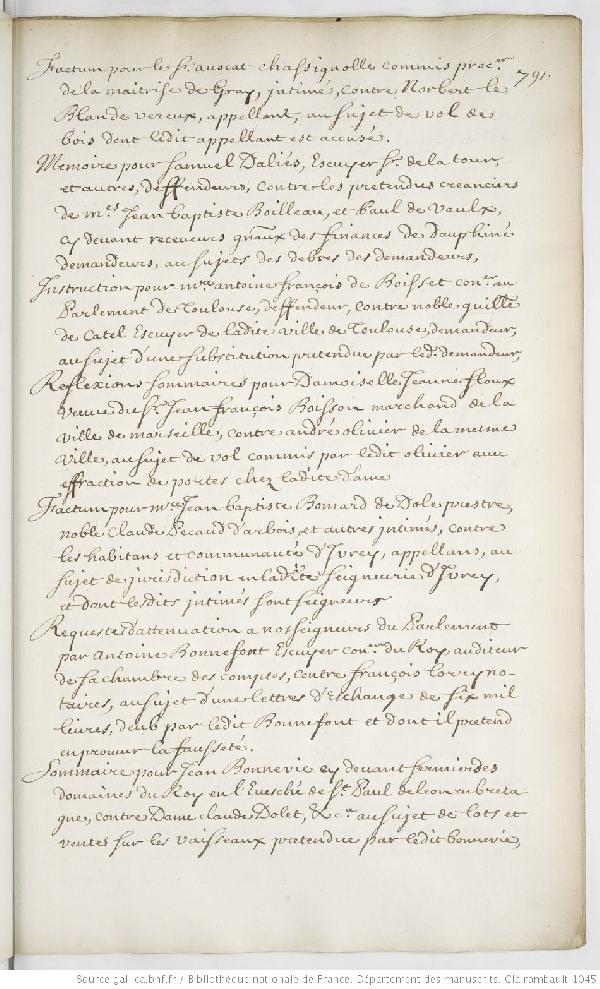 Factum pour le Sr. avocat chassignolle commis procr.
791.
de la maitrise de Gray, intimé, contre Norbert le
Blande vereux, appellant, au sujet de vol de
bois dont ledit appellant est accusé.
Memoire pour Samuel Daliés, Escuyer Sr. de la tour,
et autres, deffendeurs, contre les pretendus creanciers
de mes. Jean baptiste Boilleau, et Paul de Vaulx,
cy devant receveurs gnaux des finances de Dauphiné
demandeurs, au sujets des debtes des demandeurs,
Instruction pour mre antoine françois de Boisset conr. au
Parlement de Toulouse, deffendeur, contre noble guille
de Catel Escuyer de ladite ville de Toulouse, demandeur,
au sujet d'une substitution pretendue par led. demandeur,
Reflexions sommaires pour Damoiselle Jeanne floux
veuve du Sr. Jean françois Boisson marchand de la
ville de marseille, contre andré olivier de la mesme
ville, au sujet de vol commis par ledit olivier avec
effraction de portes chez ladite dame
Factum pour mre Jean baptiste Bomard de Dole prestre,
noble Claude Pecaud d'arbois, et autres intimés, contre
les habitans et communauté d'Ivrey, appellans, au
sujet de jurisdiction en ladite seigneurie d'Ivrey,
et dont lesdits intimés sont seigneurs
Requeste d'attenuation a nosseigneurs du Parlement
par antoine Bonnefont Escuyer conr. du Roy auditeur
de sa chambre des comptes, contre françois lorry no-
taires, au sujet d'une lettres d'Eschange de six mil
livres, deub par ledit Bonnefont et dont il pretend
en prouver la fausseté.
Sommaire pour Jean Bonnevie cy devant fermier des
domaines du Roy en l'Evesché de St. Paul de leon en breta-
gne, contre Dame claude Dolet, &ca. au sujet de lots et
ventes sur les vaisseaux pretendue par ledit bonnevie,
Source gallica.bnf.fr / Bibliothèque nationale de France. Département des manuscrits. Clairambault 1045